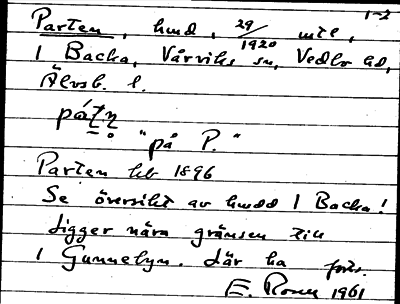 1-2
Parten, hmd, 29/1920 mtl,
1 Backa, Vårviks sn, Vedbo hd,
Älvsb. l.
"på P."
Parten hb 1896
Se översikt av hmdd 1 Backa!
Ligger nära gränsen till
1 Gunnebyn. där ha
E. 1961